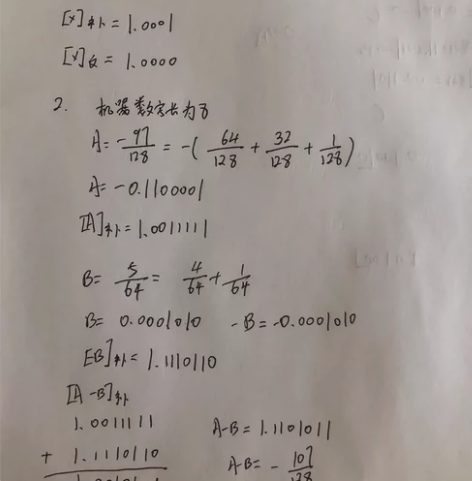 [X]补 = 1.0001
[X]反 = 1.0000
2. 机器数字长为8
A = -97/128 = -( 64/128 + 32/128 + 1/128 )
A = -0.1100001
[A]补 = 1.0011111
B = 5/64 = 4/64 + 1/64
B = 0.0001010 -B = -0.0001010
[-B]补 = 1.1110110
[A-B]补
1.0011111 A-B = 1.1101011
+ 1.1110110 A-B = - 107/128